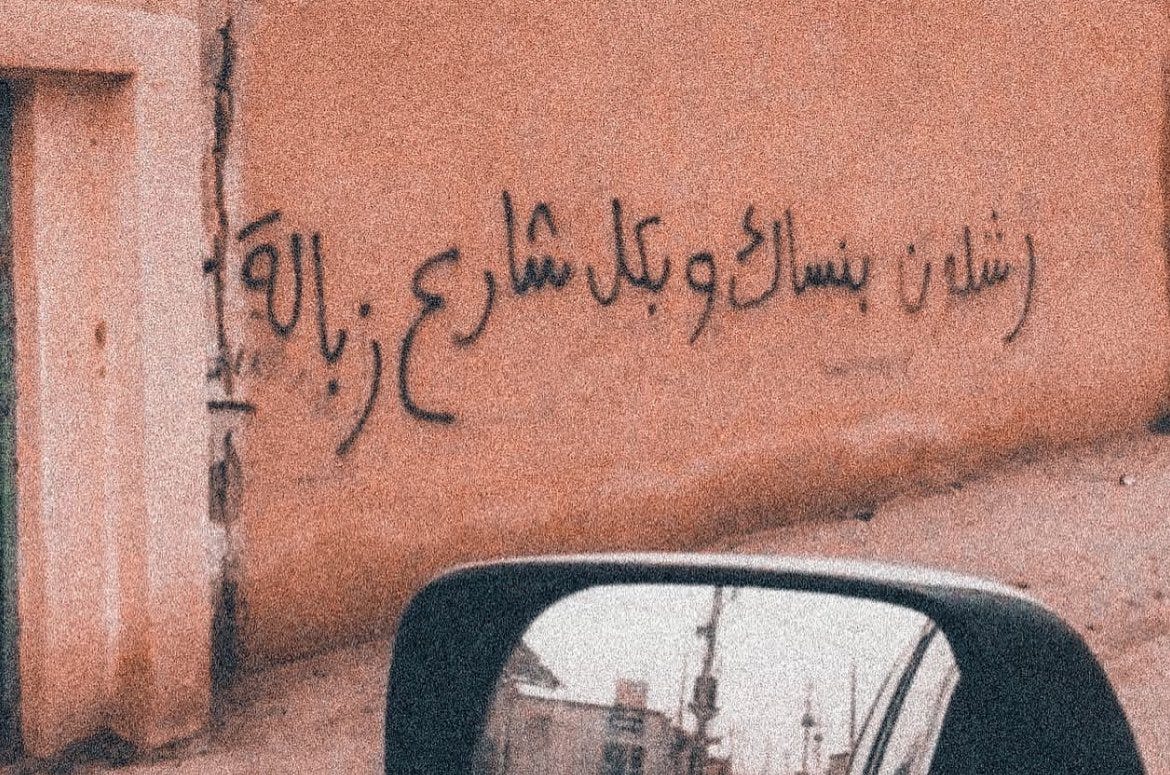 اشلون بنساك و بكل شارع زبالة